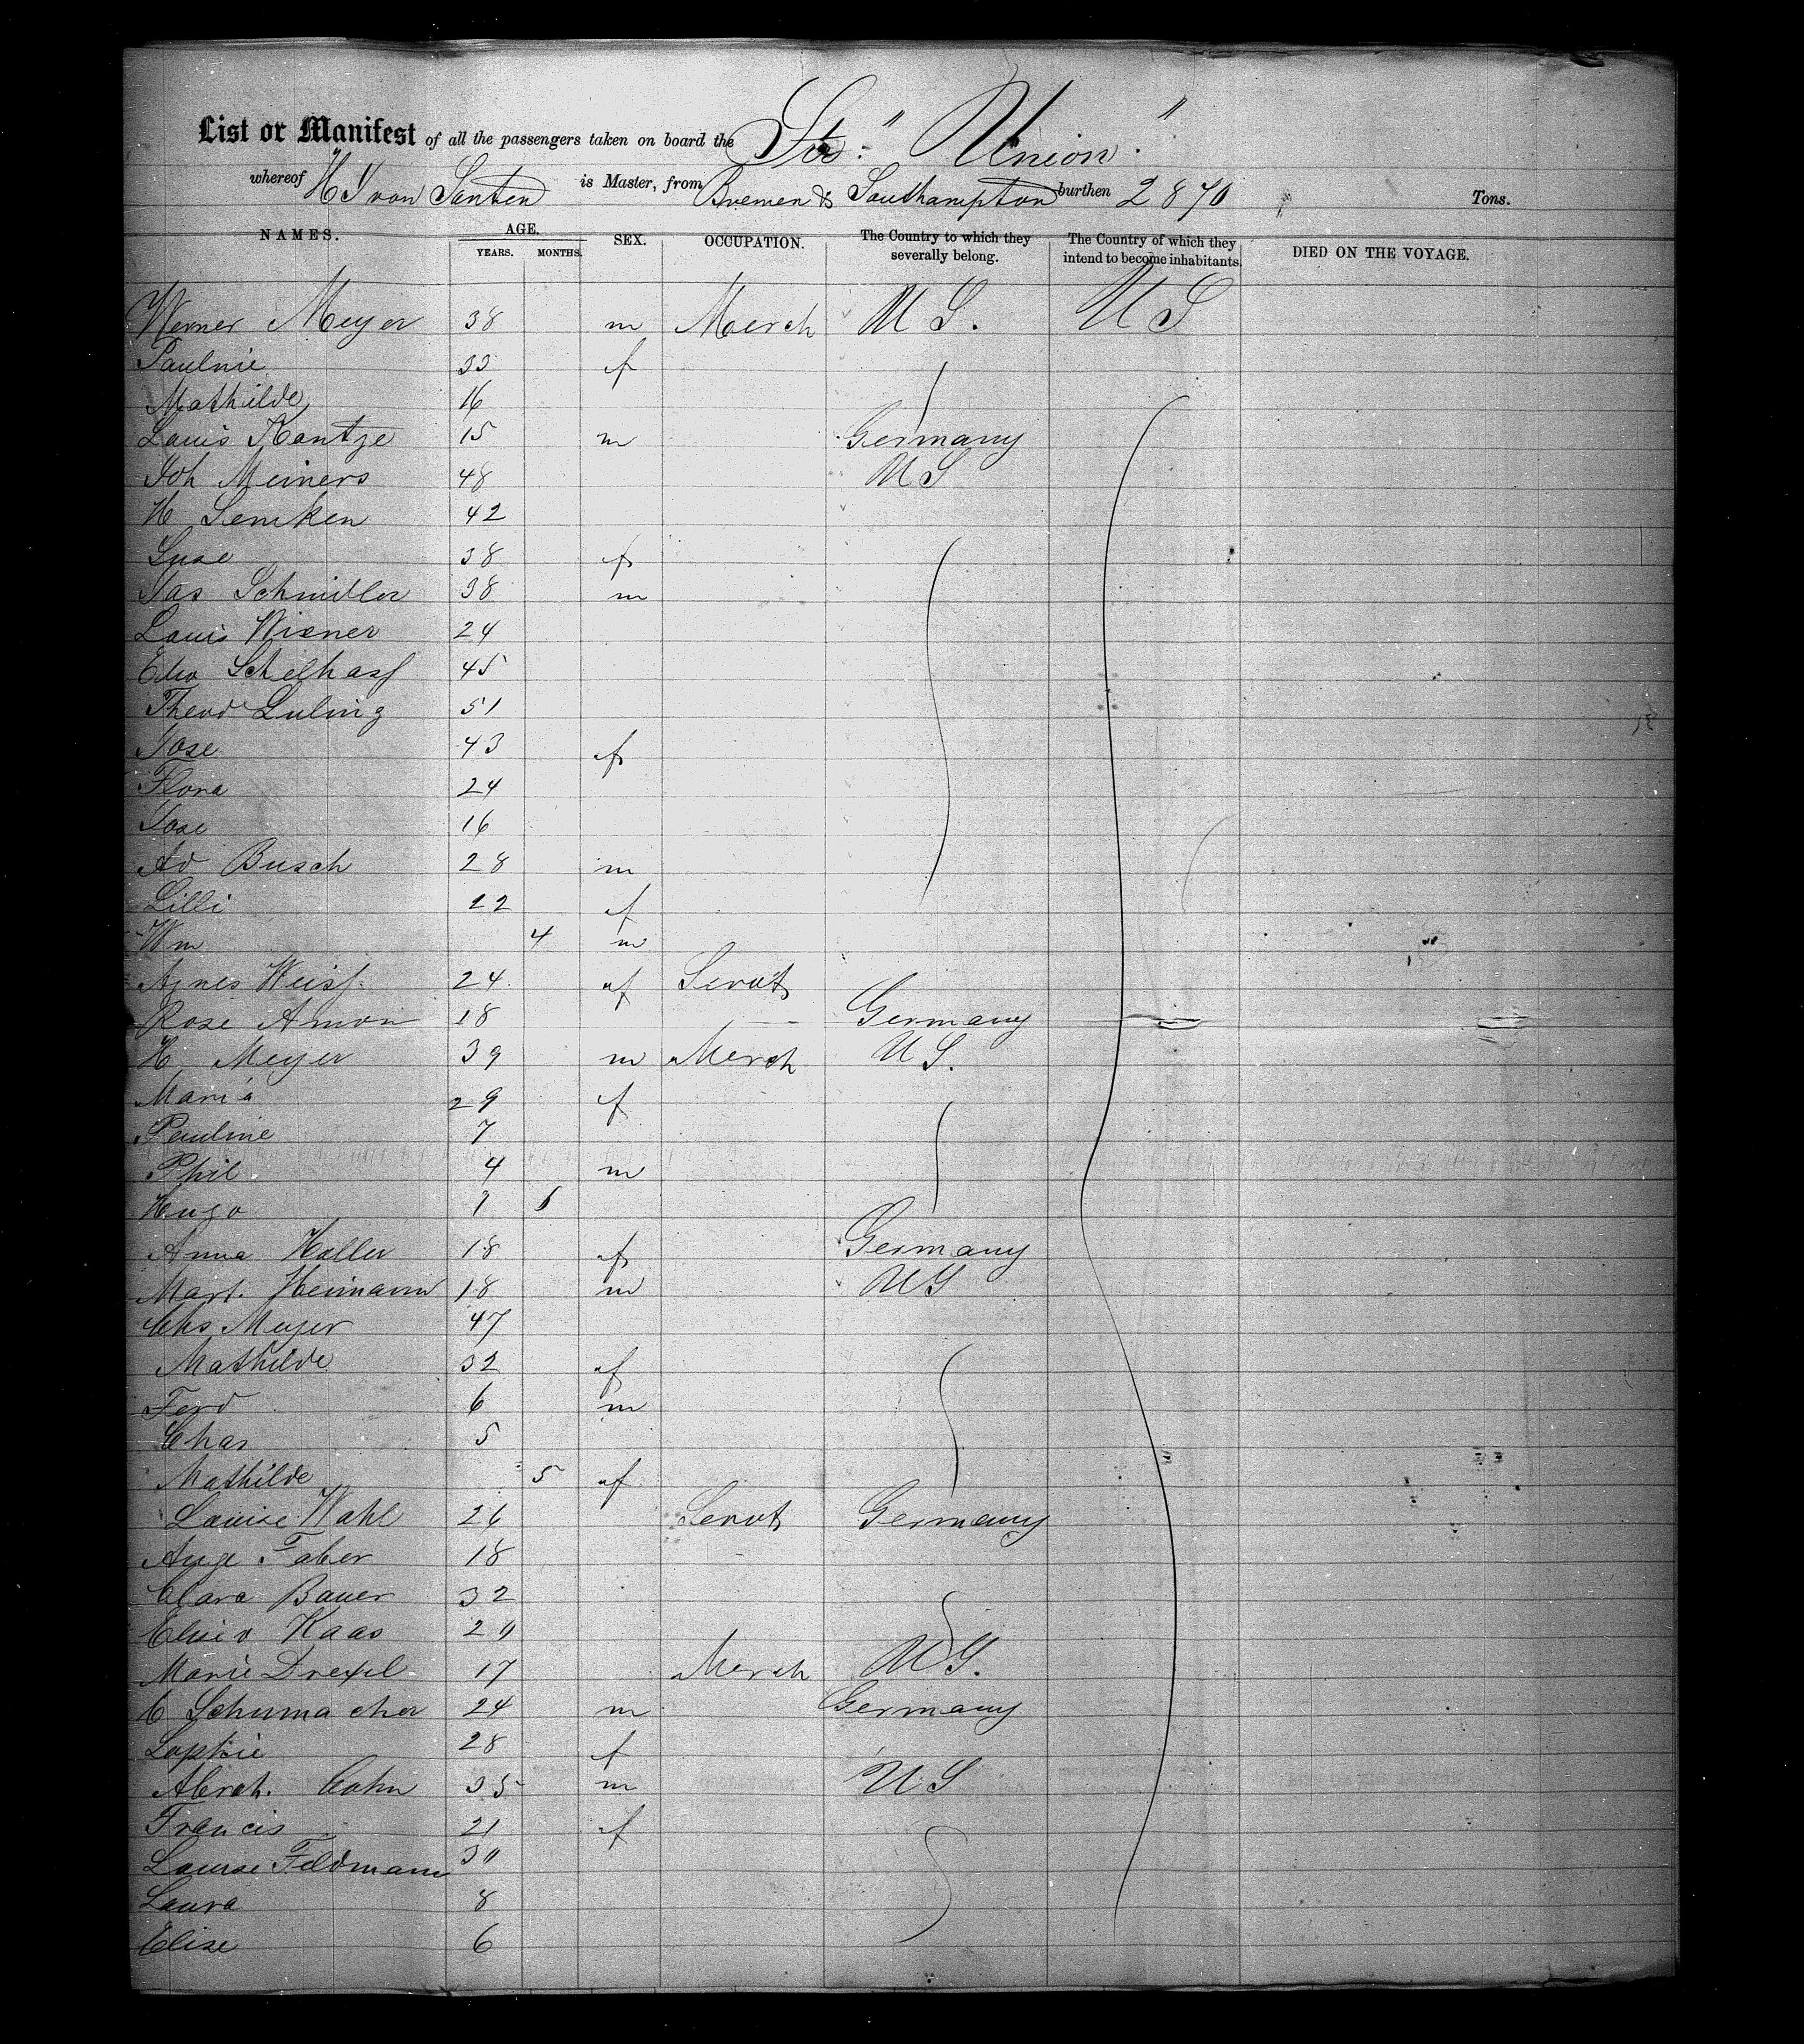 List or Manifest of all the passengers taken on board the Str. " Union "
whereof H J von Santen is Master, from Bremen & Southampton burthen 2870 Tons.
NAMES. AGE. YEARS. MONTHS. SEX. OCCUPATION. The Country to which they severally belong. The Country of which they intend to become inhabitants. DIED ON THE VOYAGE.
Werner Meyer 38 m Merch U S. U S
Paulnie 33 f
Mathilde 16
Louis Kantze 15 m Germany
Joh Meiners 48 U S
H Lemken 42
Luse 38 f
Jas Schmidler 38 m
Louis Wisner 24
Edw Schelhass 45
Theod Luling 51
Jose 43 f
Flora 24
Jose 16
Ad Busch 28 m
Lilli 22 f
Wm 4 m
Agnes Weiss 24 f Servt
Rose Amon 18 — Germany
H Meyer 39 m Merch U S.
Maria 29 f
Pauline 7
Phil 4 m
Hugo 1
Anna Haller 18 f Germany
Mart. Heimann 18 m U S
Chs Meyer 47
Mathilde 32 f
Ferd 6 m
Chas 5
Mathilde 5 f
Louise Wahl 26 Servt Germany
Aug Faber 18
Clara Bauer 32
Kaas 20
Marie Drexel 17 Merch U S.
C Schumacher 24 m Germany
Sophie 28 f
Abrah. Cohn 35 m U S
Francis 21 f
Louise Feldmann 30
Laura 8
Elise 6